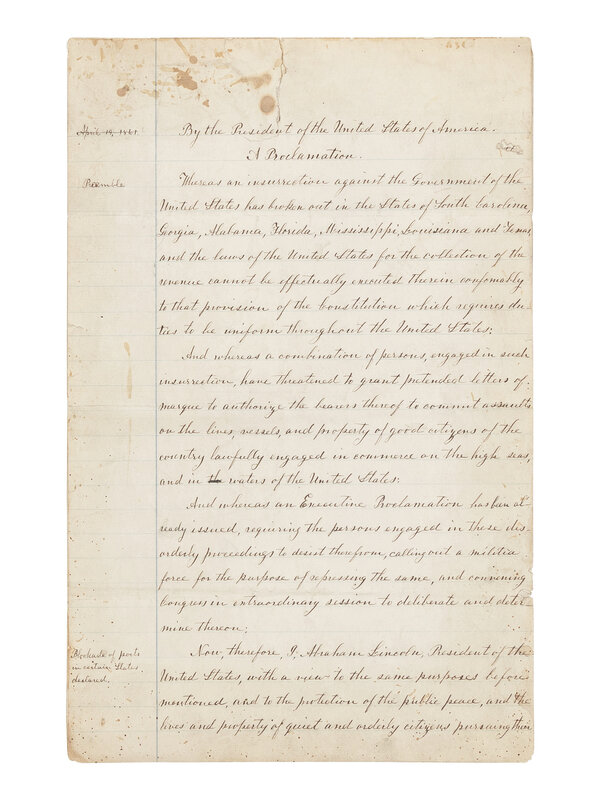 April 19, 1861
By the President of the United States of America.
A Proclamation.
Preamble
Whereas an insurrection against the Government of the
United States has broken out in the States of South Carolina,
Georgia, Alabama, Florida, Mississippi, Louisiana and Texas
and the laws of the United States for the collection of the
revenue cannot be effectually executed therein conformably
to that provision of the Constitution which requires du-
ties to be uniform throughout the United States:
And whereas a combination of persons, engaged in such
insurrection, have threatened to grant pretended letters of
marque to authorize the bearers thereof to commit assaults
on the lives, vessels, and property of good citizens of the
country lawfully engaged in commerce on the high seas,
and in the waters of the United States:
And whereas an Executive Proclamation has been al-
ready issued, requiring the persons engaged in these dis-
orderly proceedings to desist therefrom, calling out a militia
force for the purpose of repressing the same, and convening
Congress in extraordinary session to deliberate and deter
mine thereon;
Blockade of ports
in certain States
declared.
Now, therefore, I, Abraham Lincoln, President of the
United States, with a view to the same purposes before
mentioned, and to the protection of the public peace, and the
lives and property of quiet and orderly citizens pursuing their